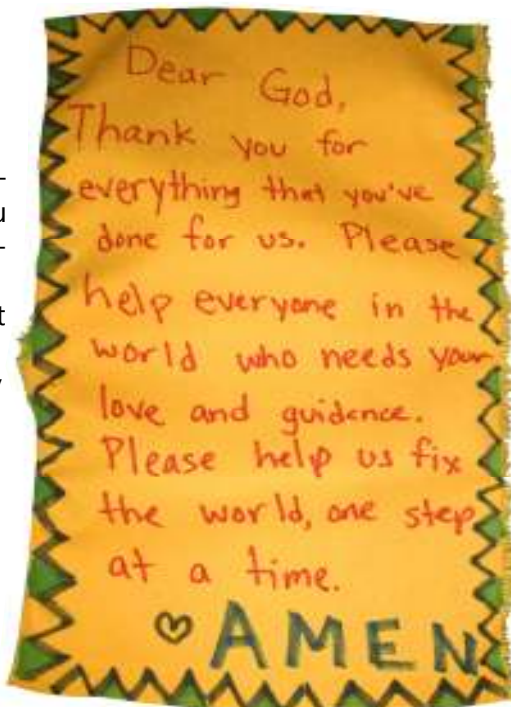 Dear God,
Thank you for
everything that you've
done for us. Please
help everyone in the
world who needs your
love and guidance.
Please help us fix
the world, one step
at a time.
♡ AMEN